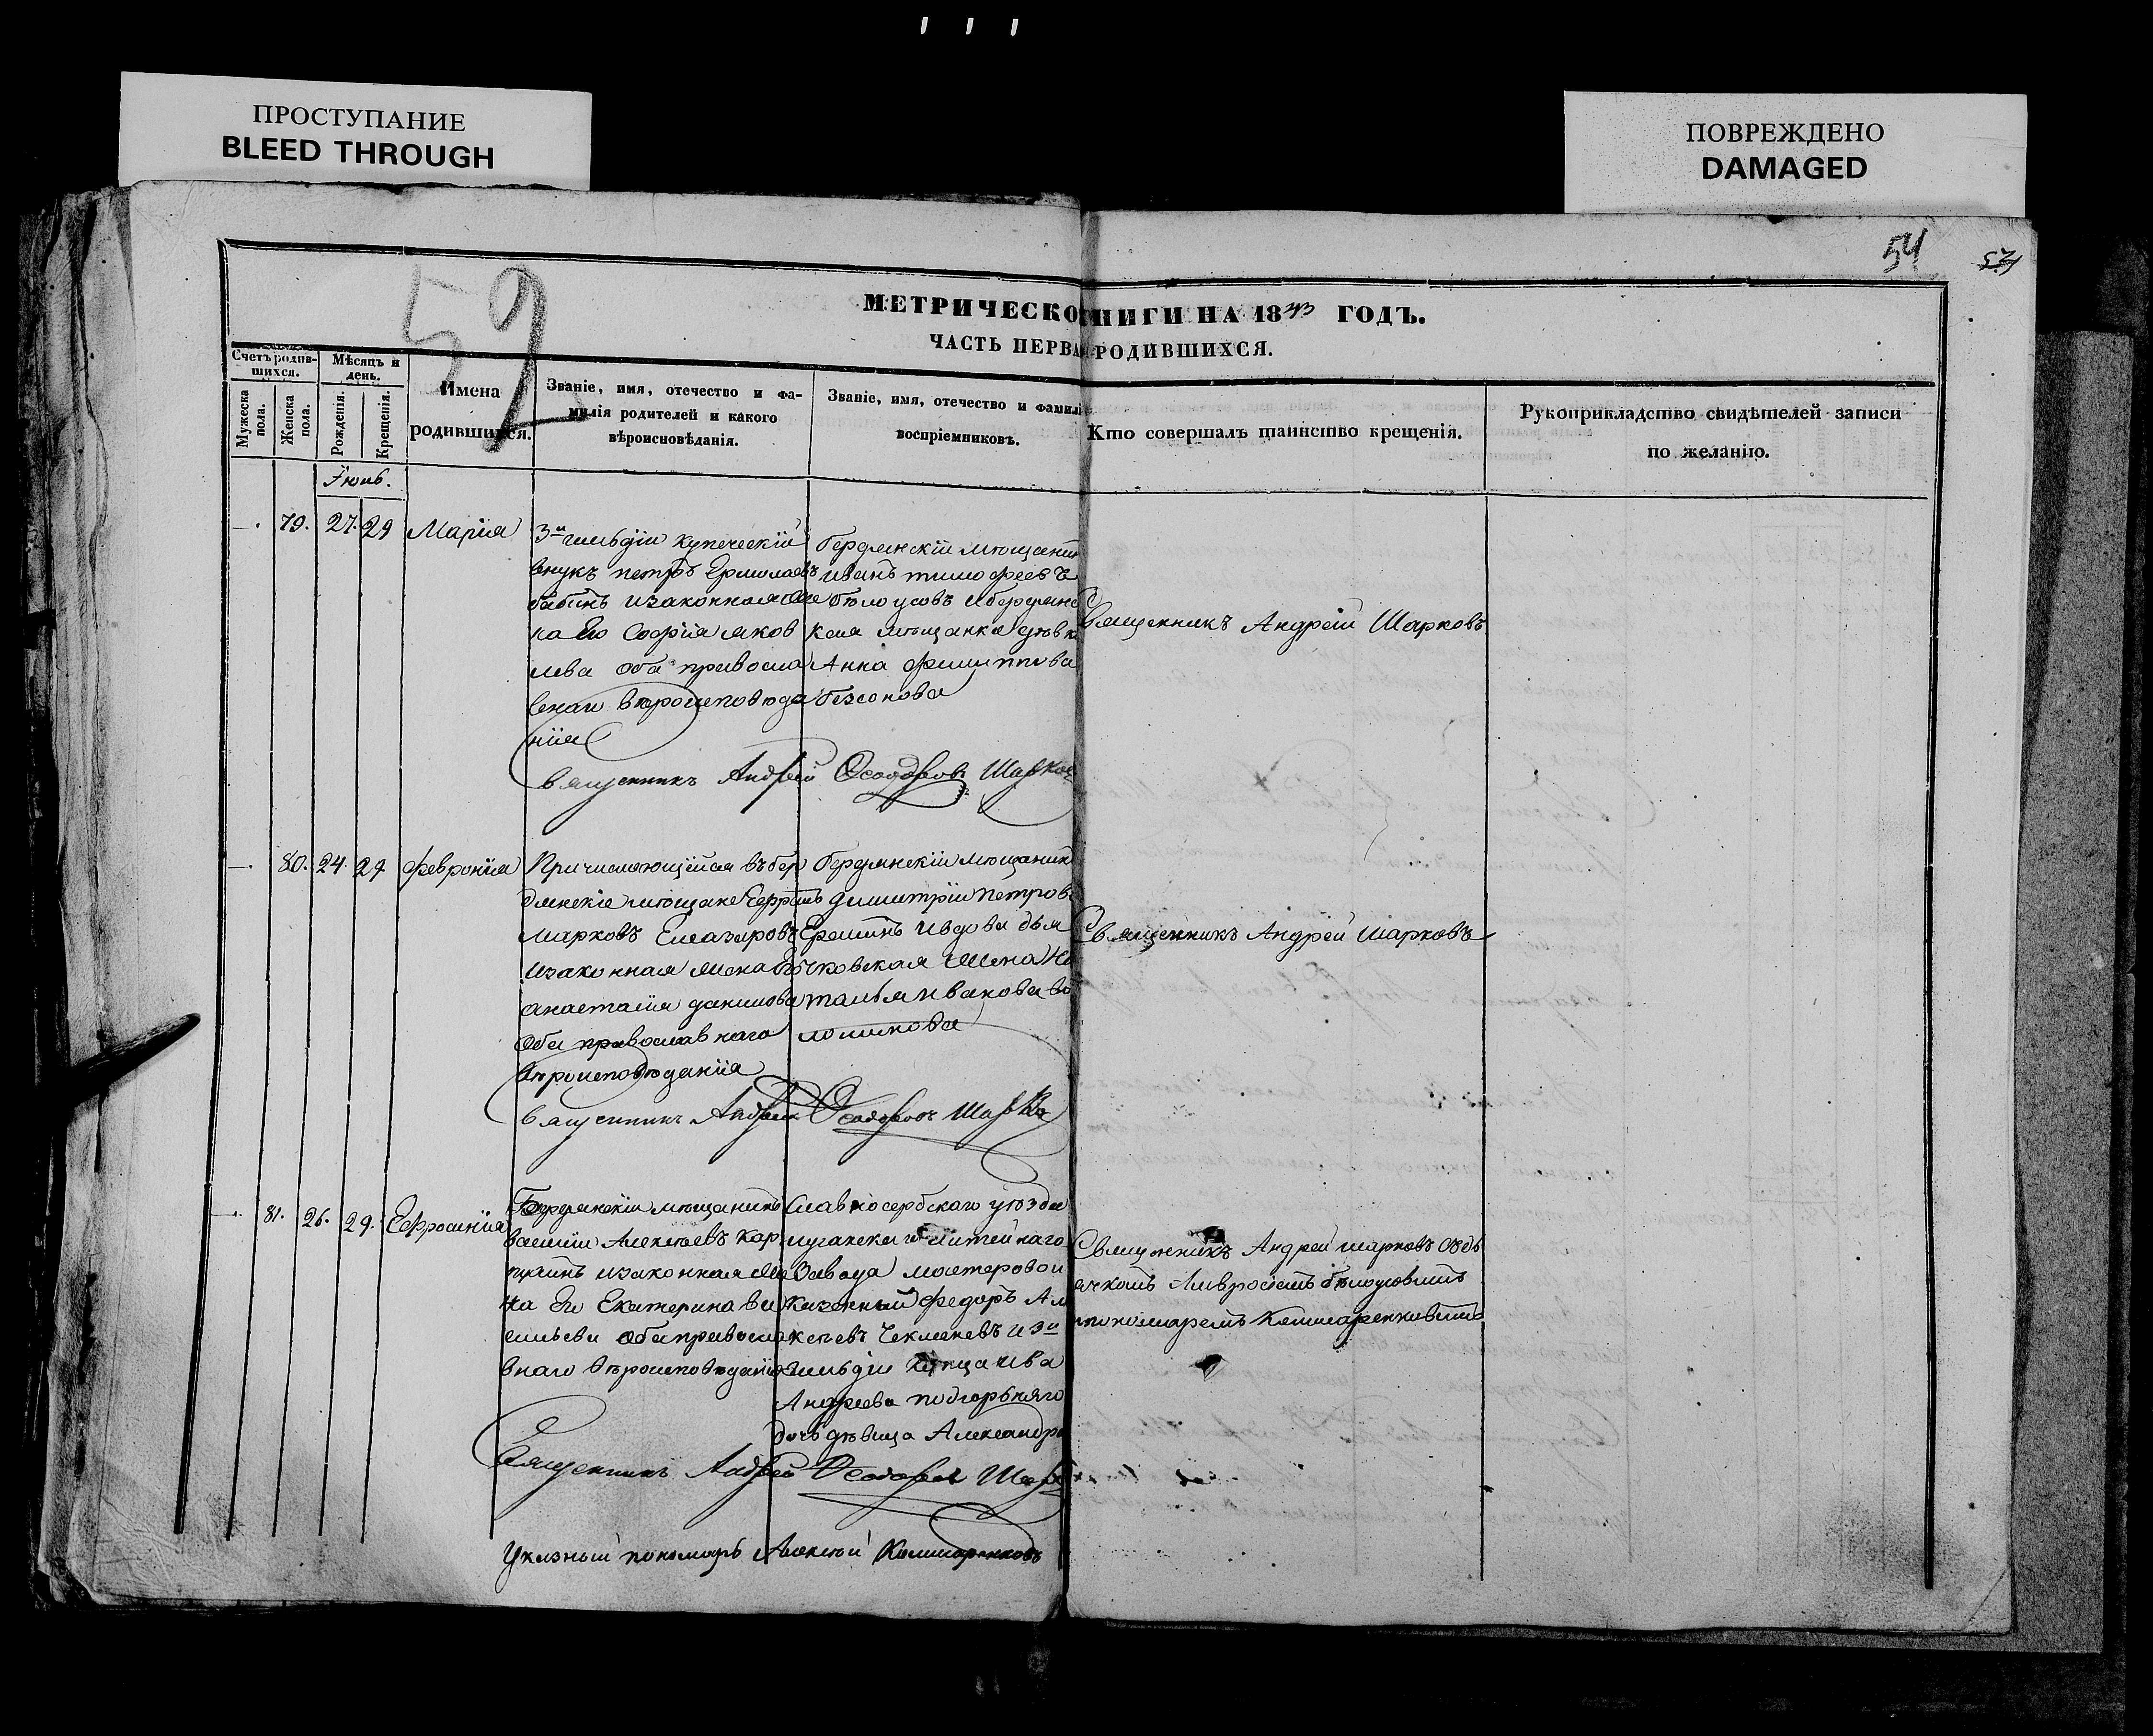 ПРОСТУПАНИЕ
BLEED THROUGH
ПОВРЕЖДЕНО
DAMAGED
54
57
59
МЕТРИЧЕСКО НИГИ НА 1843 ГОДЪ.
ЧАСТЬ ПЕРВАЯ РОДИВШИХСЯ.
Счетъ родив-
шихся.
Мужеска
пола.
Женска
пола.
Мѣсяцъ и
день.
Рожденія.
Крещенія.
Имена
родившихся.
Званіе, имя, отечество и фа-
милія родителей и какого
вѣроисновѣданія.
Званіе, имя, отечество и фамилі
воспріемниковъ.
Кто совершалъ таинство крещенія.
Рукоприкладство свидѣтелей записи
по желанію.
Іюнь.
79. 27. 29 Марія
3й гильдіи купеческій
внукъ петръ Ермолаевъ
бабинъ изаконная же
на Его Софія яков
лева оба правосла
внаго вѣроисповѣда
нія
бердянскій мѣщанин
иванъ тимофеевъ
бѣлоусовъ ибердянс
кая мѣщанка дѣвка
Анна филиппова
безсонова
Священникъ Андрей Шарковъ
Священникъ Андрей Ѳеодоровъ Шарковъ
80. 24. 29 февронія
Причисляющійся въбер
дянскіе мѣщане Ефремъ
марковъ Елазаровъ
изаконная жена Его
анастасія данилова
Оба православнаго
вѣроисповѣданія
бердянскій мѣщанин
димитрій петровъ
Ереминъ ивдова дья
чковская жена На
талья иванова во
ломикова
Священникъ Андрей Шарковъ
Священникъ Андрей Ѳеодоровъ Шарков
81. 26. 29. Ефросинія
Бердянскій мѣщанинъ
василій Алексѣевъ кар
пухинъ изаконная же
на Его Екатерина ва
сильева оба правосла
внаго вѣроисповѣданія
Славяносербскаго уѣзда
луганскаго литейнаго
завода мастеровой
казенный федоръ Ал
ксѣевъ Чекменевъ и 3й
гильдіи купца ива
Андреева подгорьняго
дочь дѣвица Александра
Священникъ Андрей шарковъ съдь
ячкомъ Амвросіемъ бѣлоусовымъ
пономаремъ Кашпаренковымъ
Священникъ Андрей Ѳеодоров Шарк
Указный пономарь Алексѣй Кашпаренковъ